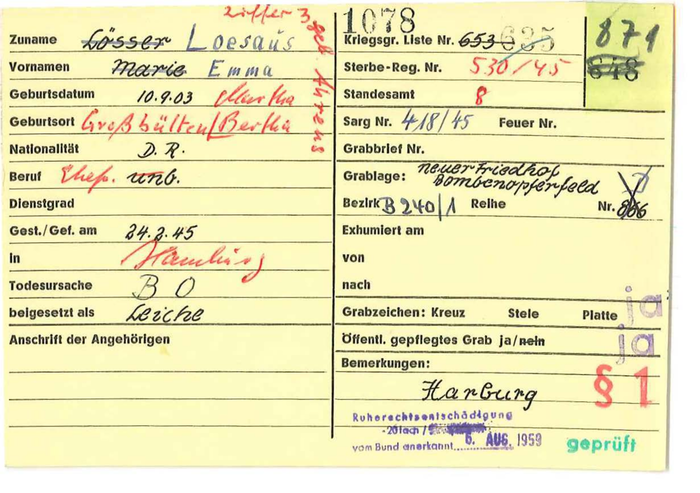 Ziffer 3
1078
871
648
Zuname Lösser Loesaus
geb. Ahrens
Kriegsgr. Liste Nr. 653 635
Vornamen Marie Emma
Sterbe-Reg. Nr. 530/45
Geburtsdatum 10.9.03 Martha
Standesamt 8
Geburtsort Großbülten/Bertha
Sarg Nr. 418/45 Feuer Nr.
Nationalität D.R.
Grabbrief Nr.
Beruf Ehefr. unb.
Grablage: neuer Friedhof
Bombenopferfeld
Dienstgrad
Bezirk B240/1 Reihe Nr. 866
Gest./Gef. am 24.2.45
Exhumiert am
in Hamburg
von
Todesursache B O
nach
beigesetzt als Leiche
Grabzeichen: Kreuz Stele Platte ja
Anschrift der Angehörigen
Öffentl. gepflegtes Grab ja/nein ja
Bemerkungen:
Harburg
§ 1
Ruherechtsentschädigung
vom Bund anerkannt 6. AUG. 1959
geprüft